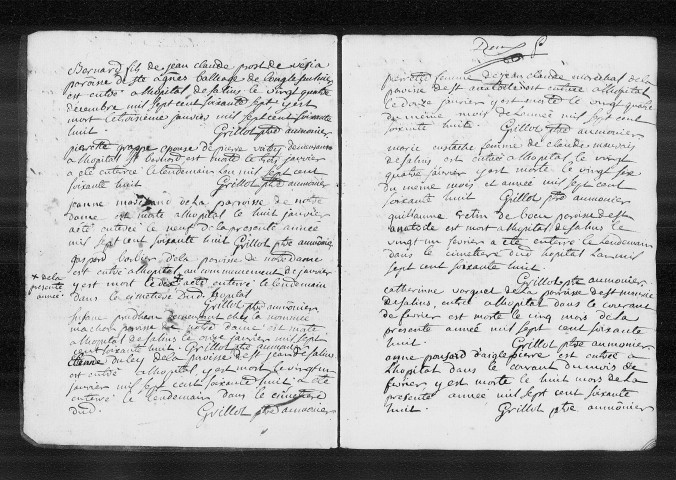 Bernard fils de jean claude prost de
paroisse de ste agnes balliage de
est entré a lhopital de salins le vingt quatre
decembre mil sept cent soixante sept y est
mort le troisieme janvier mil sept cent soixante
huit. Grillot ptre aumonier
pierrette epouse de pierre
a lhopital st bernard est morte le trois janvier
a été enterrée le lendemain lan mil sept cent
soixante huit Grillot ptre aumonier
janne de la paroisse de notre
dame est morte a lhopital le huit janvier
enterrée le neuf de la presente année
mil sept cent soixante huit Grillot ptre aumônier
gaspard de la paroisse de notre dame
est entré a lhopital au commencement de janvier
y est mort le dix + enterré le lendemain
dans la cimetiere dud. hopital
+ de la
presente
année
Grillot ptre aumônier
demeurant chez la nommée
paroisse de notre dame est morte
a lhopital de salins le onze janvier mil sept
cent soixante huit. Grillot ptre aumonier
Etienne de la paroisse de st jean de salins
est entré a lhopital y est mort le vingt un
janvier mil sept cent soixante huit a été
enterré le lendemain dans le cimetiere
dud. Grillot ptre aumonier
Deux
pierrette femme de jean claude marechal de la
paroisse de st anatoile est entrée a lhopital
le douze janvier y est morte le vingt quatre
du même mois de lannée mil sept cent
soixante huite. Grillot ptre aumonier
marie eustache femme de claude mauvais
de salins est entrée a lhopital le vingt
quatre janvier y est morte le vingt six
du même mois et année mil sept cent
soixante huit Grillot ptre aumonier
guillaume de paroisse de st
anatoile est mort a lhopital de salins le
vingt un fevrier a été enterré le lendemain
dans le cimetiere dud hopital lan mil
sept cent soixante huit.
Grillot ptre aumonier
catherinne de la paroisse de st maurice
de salins, entrée a lhopital dans le courant
de fevrier est morte le cinq mars de la
presente année mil sept cent soixante
huit. Grillot ptre aumonier
anne ponsard d'aiglepierre est entrée a
lhopital dans le courant du mois de
fevrier y est morte le huit mars de la
presente année mil sept cent soixante
huit. Grillot ptre aumônier